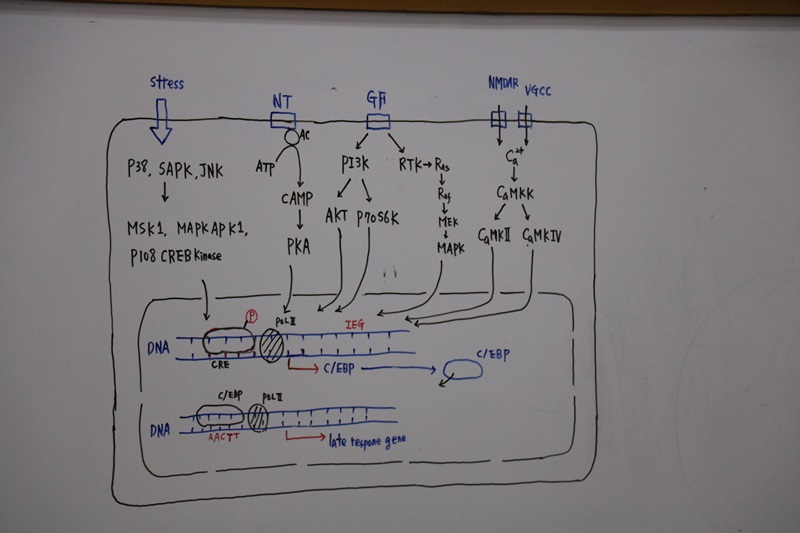 stress
NT
GF
NMDAR
VGCC
AC
ATP
cAMP
PKA
P38, SAPK, JNK
MSK1, MAPKAPK1,
P108 CREB kinase
PI3K
AKT
P70S6K
RTK → Ras
Raf
MEK
MAPK
Ca²⁺
CaMKK
CaMKII
CaMKIV
P
POLII
IEG
DNA
CRE
C/EBP
C/EBP
C/EBP
POLII
DNA
AACTT
late respone gene